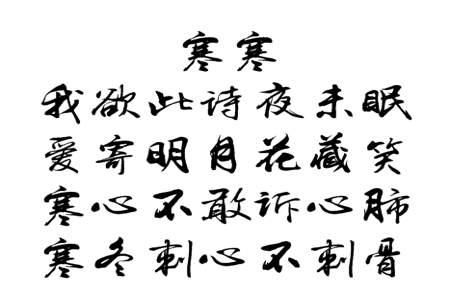 寒寒
我欲此诗夜未眠
爱寄明月花藏笑
寒心不敢诉心肺
寒冬刺心不刺骨